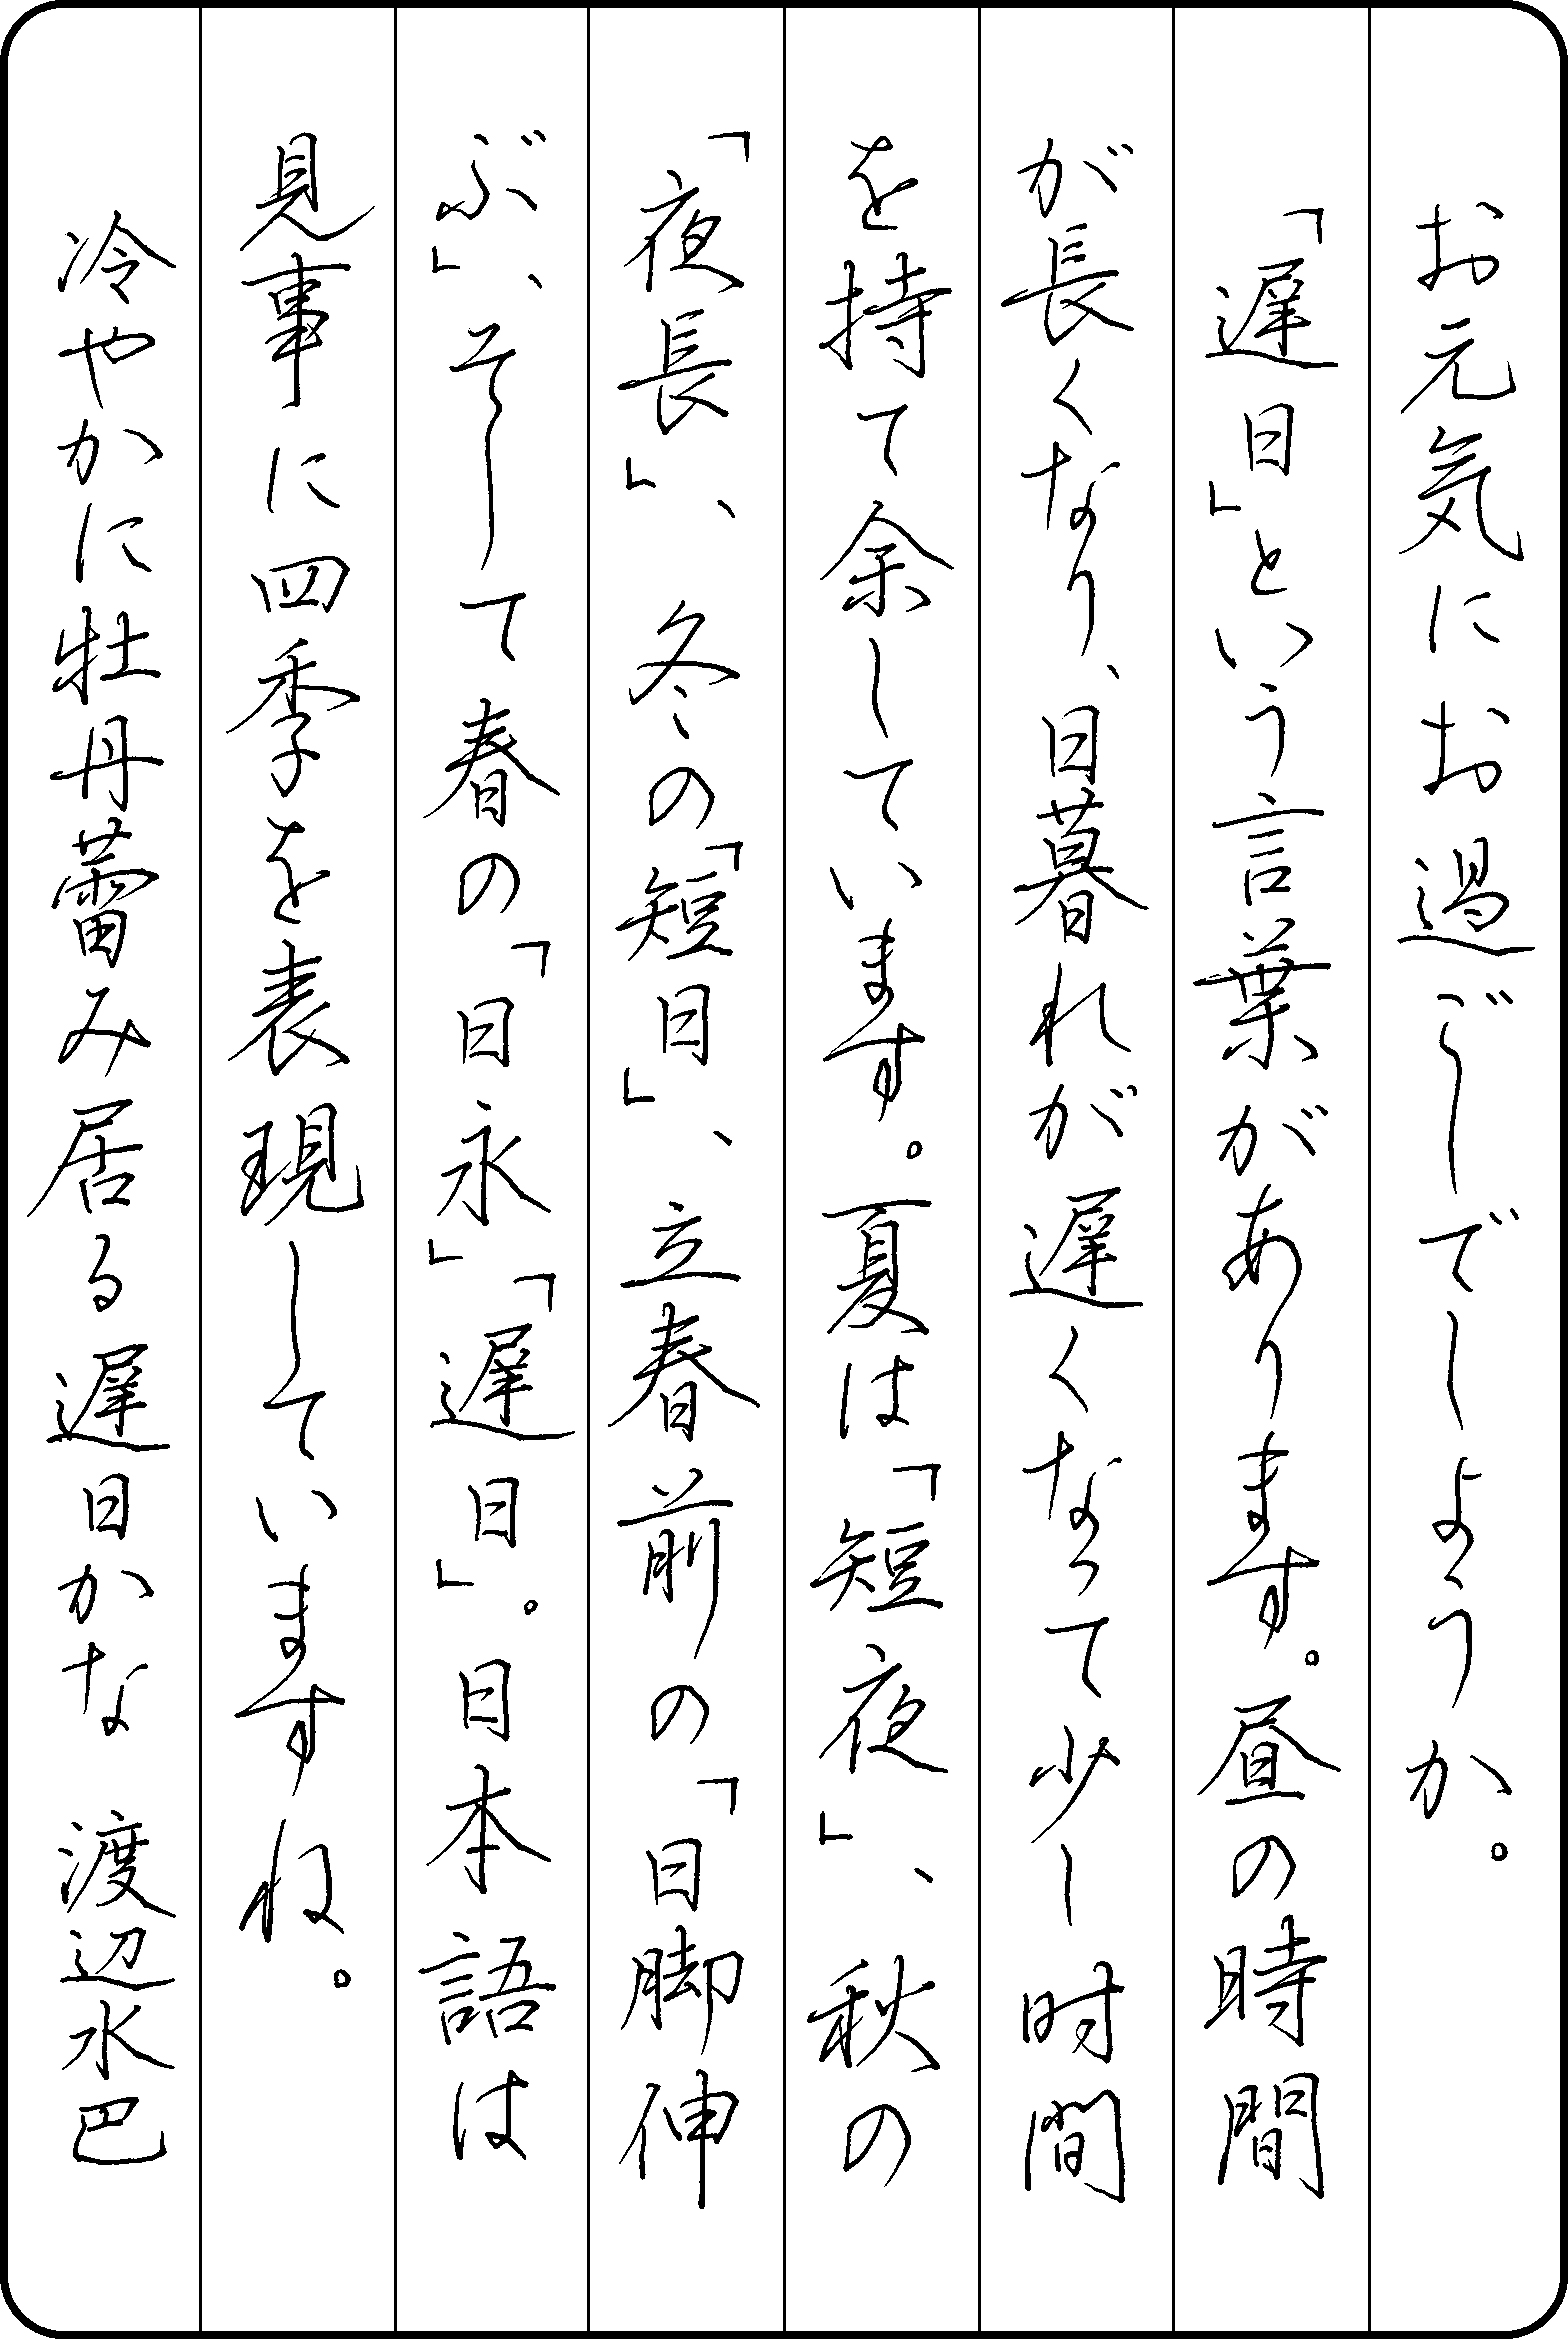 お元気にお過ごしでしょうか。
「遅日」という言葉があります。昼の時間
が長くなり、日暮れが遅くなって少し時間
を持て余しています。夏は「短夜」、秋の
「夜長」、冬の「短日」、立春前の「日脚伸
ぶ」、そして春の「日永」「遅日」。日本語は
見事に四季を表現していますね。
冷やかに牡丹蕾み居る遅日かな　渡辺水巴